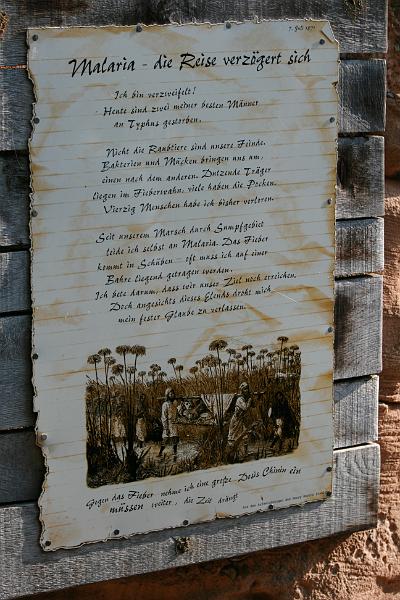 7. Juli 1871
Malaria - die Reise verzögert sich
Ich bin verzweifelt!
Heute sind zwei meiner besten Männer
an Typhus gestorben.
Nicht die Raubtiere sind unsere Feinde.
Bakterien und Mücken bringen uns um,
einen nach dem anderen. Dutzende Träger
liegen im Fieberwahn, viele haben die Pocken.
Vierzig Menschen habe ich bisher verloren.
Seit unserem Marsch durch Sumpfgebiet
leide ich selbst an Malaria. Das Fieber
kommt in Schüben - oft muss ich auf einer
Bahre liegend getragen werden.
Ich bete darum, dass wir unser Ziel noch erreichen.
Doch angesichts dieses Elends droht mich
mein fester Glaube zu verlassen.
Gegen das Fieber nehme ich eine große Dosis Chinin ein
müssen weiter, die Zeit drängt